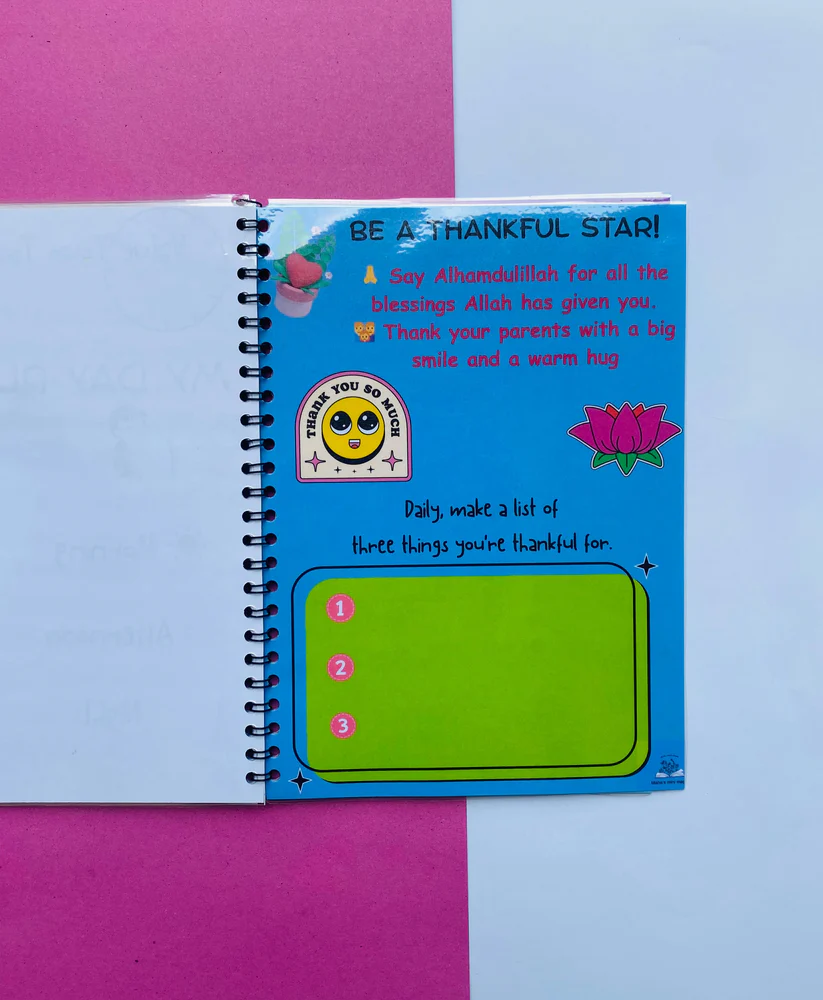 BE A THANKFUL STAR!
🙏 Say Alhamdulillah for all the
blessings Allah has given you.
Thank your parents with a big
smile and a warm hug
THANK YOU SO MUCH
Daily, make a list of
three things you're thankful for.
1
2
3